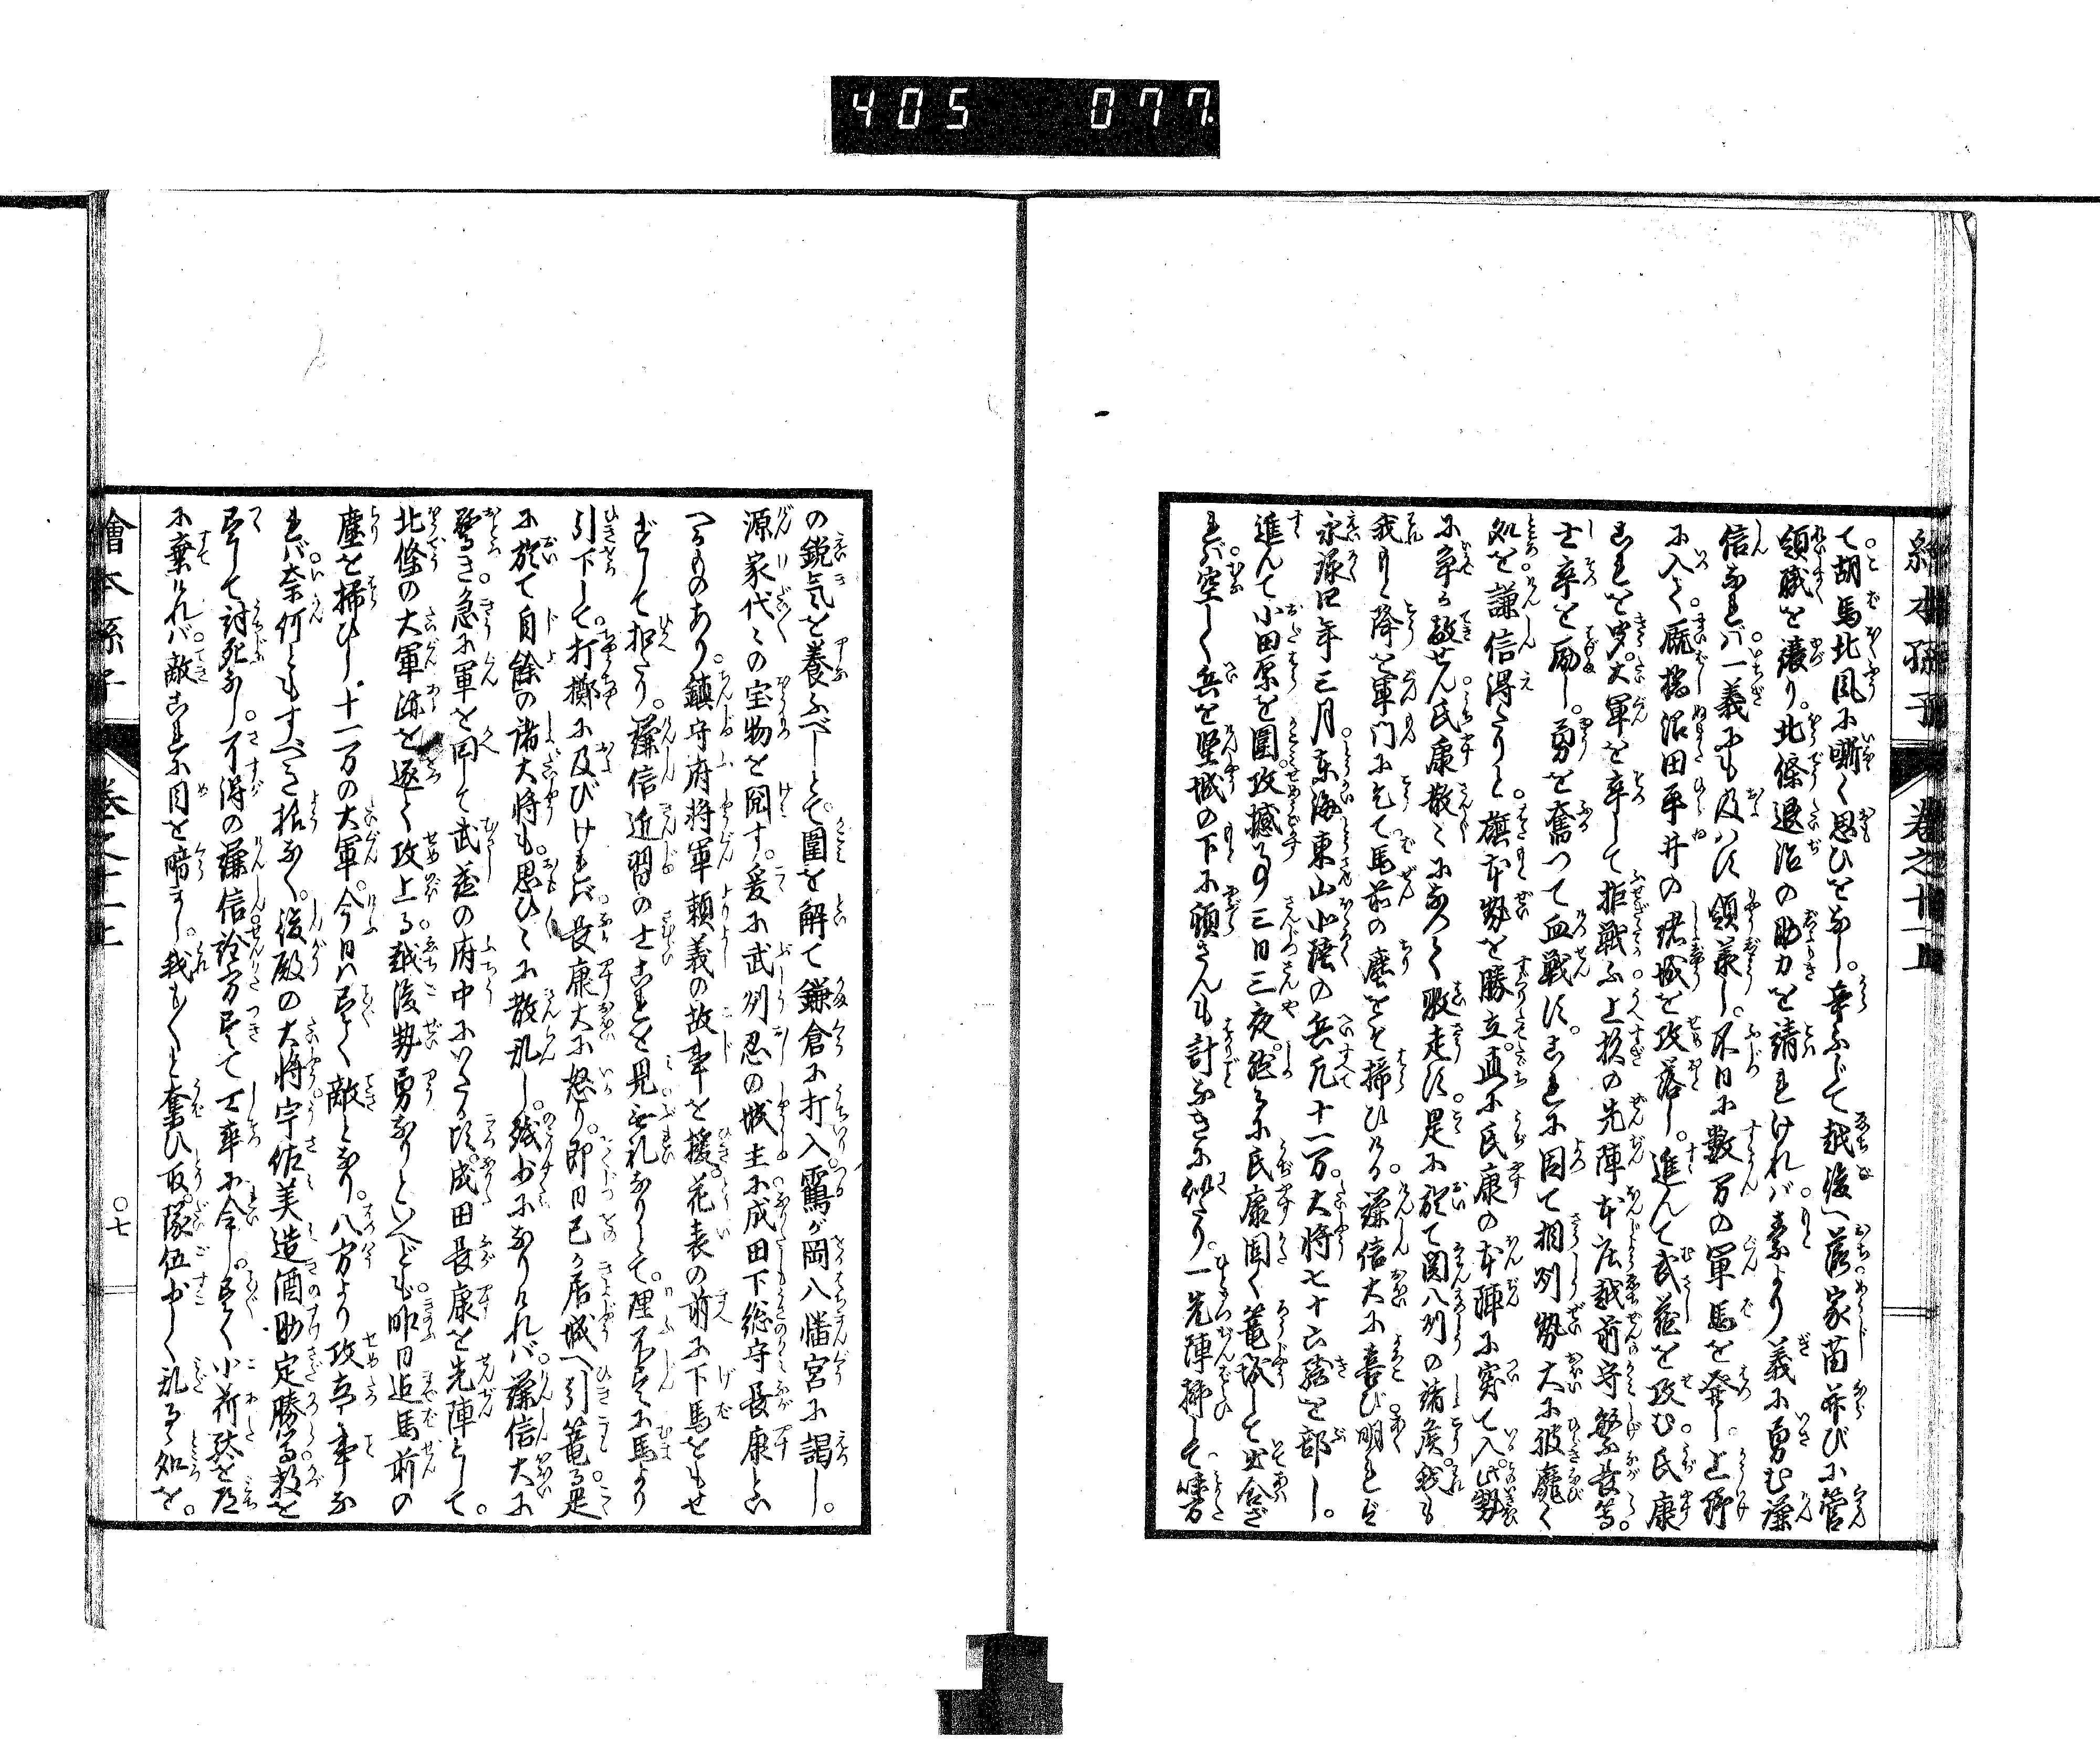 405 077.
繪本孫子 卷之十一上
て胡馬北風に嘶く思ひをなし。辛ふじて越後へ落家苗并びに管
領職を讓り。北條退治の助力を請はれければ素より義に勇む謙
信なれバ一義にも及バず領掌し。不日に數万の軍馬を発し。上野
に入て。厩橋沼田平井の諸城を攻落し。進んで武藏を攻む氏康
これを大軍を卒して拒戦ふ上杦の先陣本庄越前守繁長等。
士卒を励し。勇を奮つて血戦す。これに因て相州勢大に披靡く
処を謙信得たりと。旗本勢を勝立。直に氏康の本陣に突て入此勢
に争か敵せん氏康散々になつて敗走す。是に於て関八州の諸矦我も
我もと降を軍門に乞て馬前の塵をぞ掃ひける。謙信大に喜び明れバ
永禄四年三月東海東山北陸の兵凡十一万。大将七十六騎を部し。
進んで小田原を圍。攻撼事三日三夜。然るに氏康固く篭城して出合ざ
れバ空しく兵を堅城の下に頓さんも計なきに似たり。一先陣拂して味方
の鋭気を養ふべしとて。圍を解て鎌倉に打入靍が岡八幡宮に謁し。
源家代々の宝物を閲す。爰に武州忍の城主に成田下総守長康とい
へるものあり。鎮守府将軍頼義の故事を援。花表の前に下馬をもせ
ずして扣たり。謙信近習の士これを見無礼なりとて。理不尽に馬より
引下して。打擲に及びければ。長康大に怒り。即日己が居城へ引篭る是
に於て自餘の諸大将も。思ひ思ひに散乱し。残少になりけれバ。謙信大に
驚き。急に軍を回して武藏の府中にいたる頃。成田長康を先陣として。
北條の大軍跡を逐て攻上る越後勢勇なりといへども。昨日迄馬前の
塵を掃ひし。十一万の大軍。今日ハ尽く敵となり。八方より攻立る事な
れバ。奈何ともすべき術なく。後殿の大将宇佐美造酒助定勝等数を
尽して討死なし。さすがの謙信詮方尽て士卒に令し。尽く小荷駄を道
に棄けれバ。敵これに目を暗まし。我も我もと奪ひ取。隊伍少しく乱るゝ処を。
繪本孫子 卷之十一上 〇七